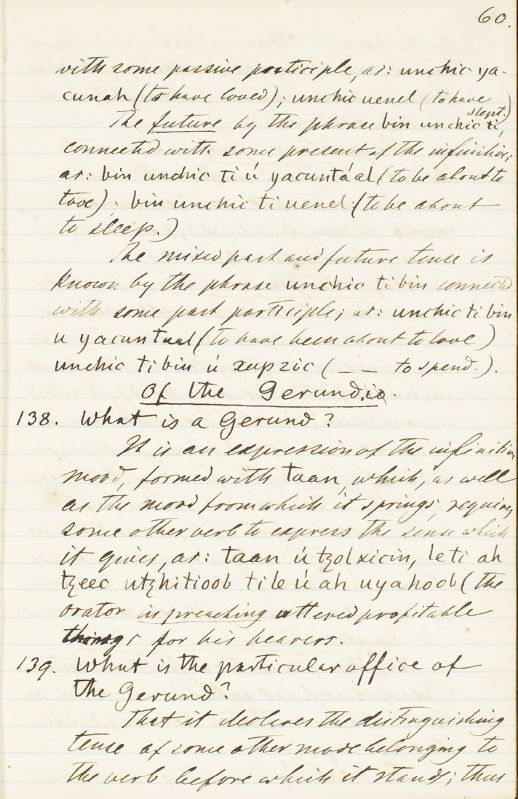 60.
with some passive participle, as: unchic ya-
cunah (to have loved); unchic uenel (to have
slept.)
The future by the phrase bin unchic ti,
connected with some present of the infinitive;
as: bin unchic ti ú yacuntáal (to be about to
love). bin unchic ti uenel (to be about
to sleep.)
The mixed past and future tense is
known by the phrase unchic ti bin connected
with some past participle; as: unchic ti bin
u yacuntaal (to have been about to love)
unchic ti bin ú xupzic ( — — to spend.).
Of the Gerund.
138. What is a Gerund?
It is an expression of the infinitive
mood, formed with taan, which, as well
as the mood from which it springs, requires
some other verb to express the sense which
it gives, as: taan ú tzolxicin, leti ah
tzeec utzhitioob tile ú ah uyahoob (the
orator in preaching uttered profitable
things for his hearers.
139. What is the particular office of
the Gerund?
That it declares the distinguishing
tense of some other mode belonging to
the verb before which it stands; thus